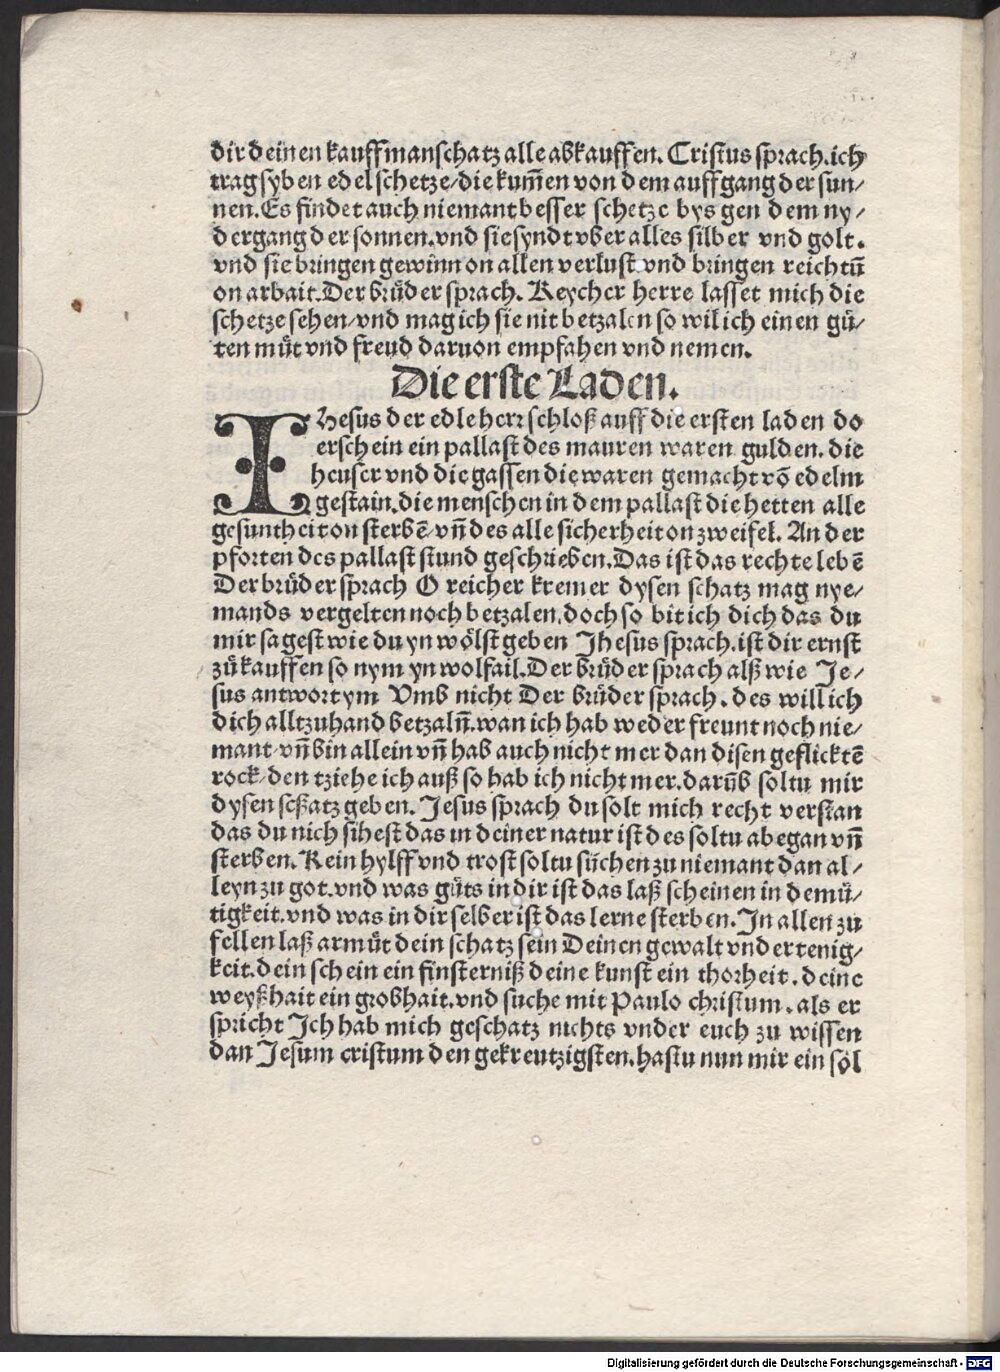 dir deinen kauffmanschatz alle abkauffen. Cristus sprach. ich
trag syben edel schetze/die kum̄en von dem auffgang der sun/
nen. Es findet auch niemant besser schetze bys gen dem ny/
dergang der sonnen. vnd sie synd t vber alles silber vnd golt.
vnd sie bringen gewinn on allen verlust vnd bringen reichtū
on arbait. Der brůder sprach. Reycher herre lasset mich die
schetze sehen/vnd mag ich sie nit betzalen so wil ich einen gů/
ten můt vnd freud daruon empfahen vnd nemen.
Die erste Laden.
IHesus der edle herr schloß auff die ersten laden do
erschein ein pallast des mauren waren gulden. die
heuser vnd die gassen die waren gemacht vō edelm
gestain. die menschen in dem pallast die hetten alle
gesuntheit on sterbē/vn̄ des alle sicherheit on zweifel. An der
pforten des pallast stund geschrieben. Das ist das rechte lebē
Der brůder sprach O reicher kremer dysen schatz mag nye/
mands vergelten noch betzalen. doch so bit ich dich das du
mir sagest wie du yn wölst geben Jhesus sprach. ist dir ernst
zů kauffen so nym yn wolfail. Der brůder sprach alß wie Je/
sus antwort ym Vmb nicht Der brůder sprach. des will ich
dich alltzuhand betzaln̄. wan ich hab weder freunt noch nie/
mant/vn̄ bin allein vn̄ hab auch nicht mer dan disen geflicktē
rock/den tziehe ich auß so hab ich nicht mer. darūb soltu mir
dysen scßatz geben. Jesus sprach du solt mich recht verstan
das du nich sihest das in deiner natur ist des soltu abegan vn̄
sterben. Kein hylff vnd trost soltu sůchen zu niemant dan al/
leyn zu got. vnd was gůts in dir ist das laß scheinen in demů/
tigkeit. vnd was in dir selber ist das lerne sterben. In allen zu
fellen laß armůt dein schatz sein Deinen gewalt vndertenig/
keit. dein schein ein finsterniß deine kunst ein thorheit. deine
weyßhait ein grobhait. vnd suche mit Paulo christum. als er
spricht Ich hab mich geschatz nichts vnder euch zu wissen
dan Jesum cristum den gekreutzigsten. hastu nun mir ein söl
Digitalisierung gefördert durch die Deutsche Forschungsgemeinschaft - DFG